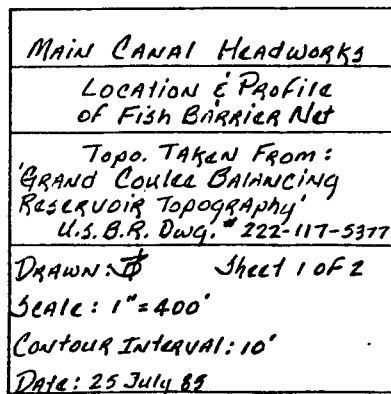 Main Canal Headworks
Location & Profile
of Fish Barrier Net
Topo. Taken From:
'Grand Coulee Balancing
Reservoir Topography'
U.S.B.R. Dwg. # 222-117-5377
Drawn: Sheet 1 of 2
Scale: 1" = 400'
Contour Interval: 10'
Date: 25 July 85